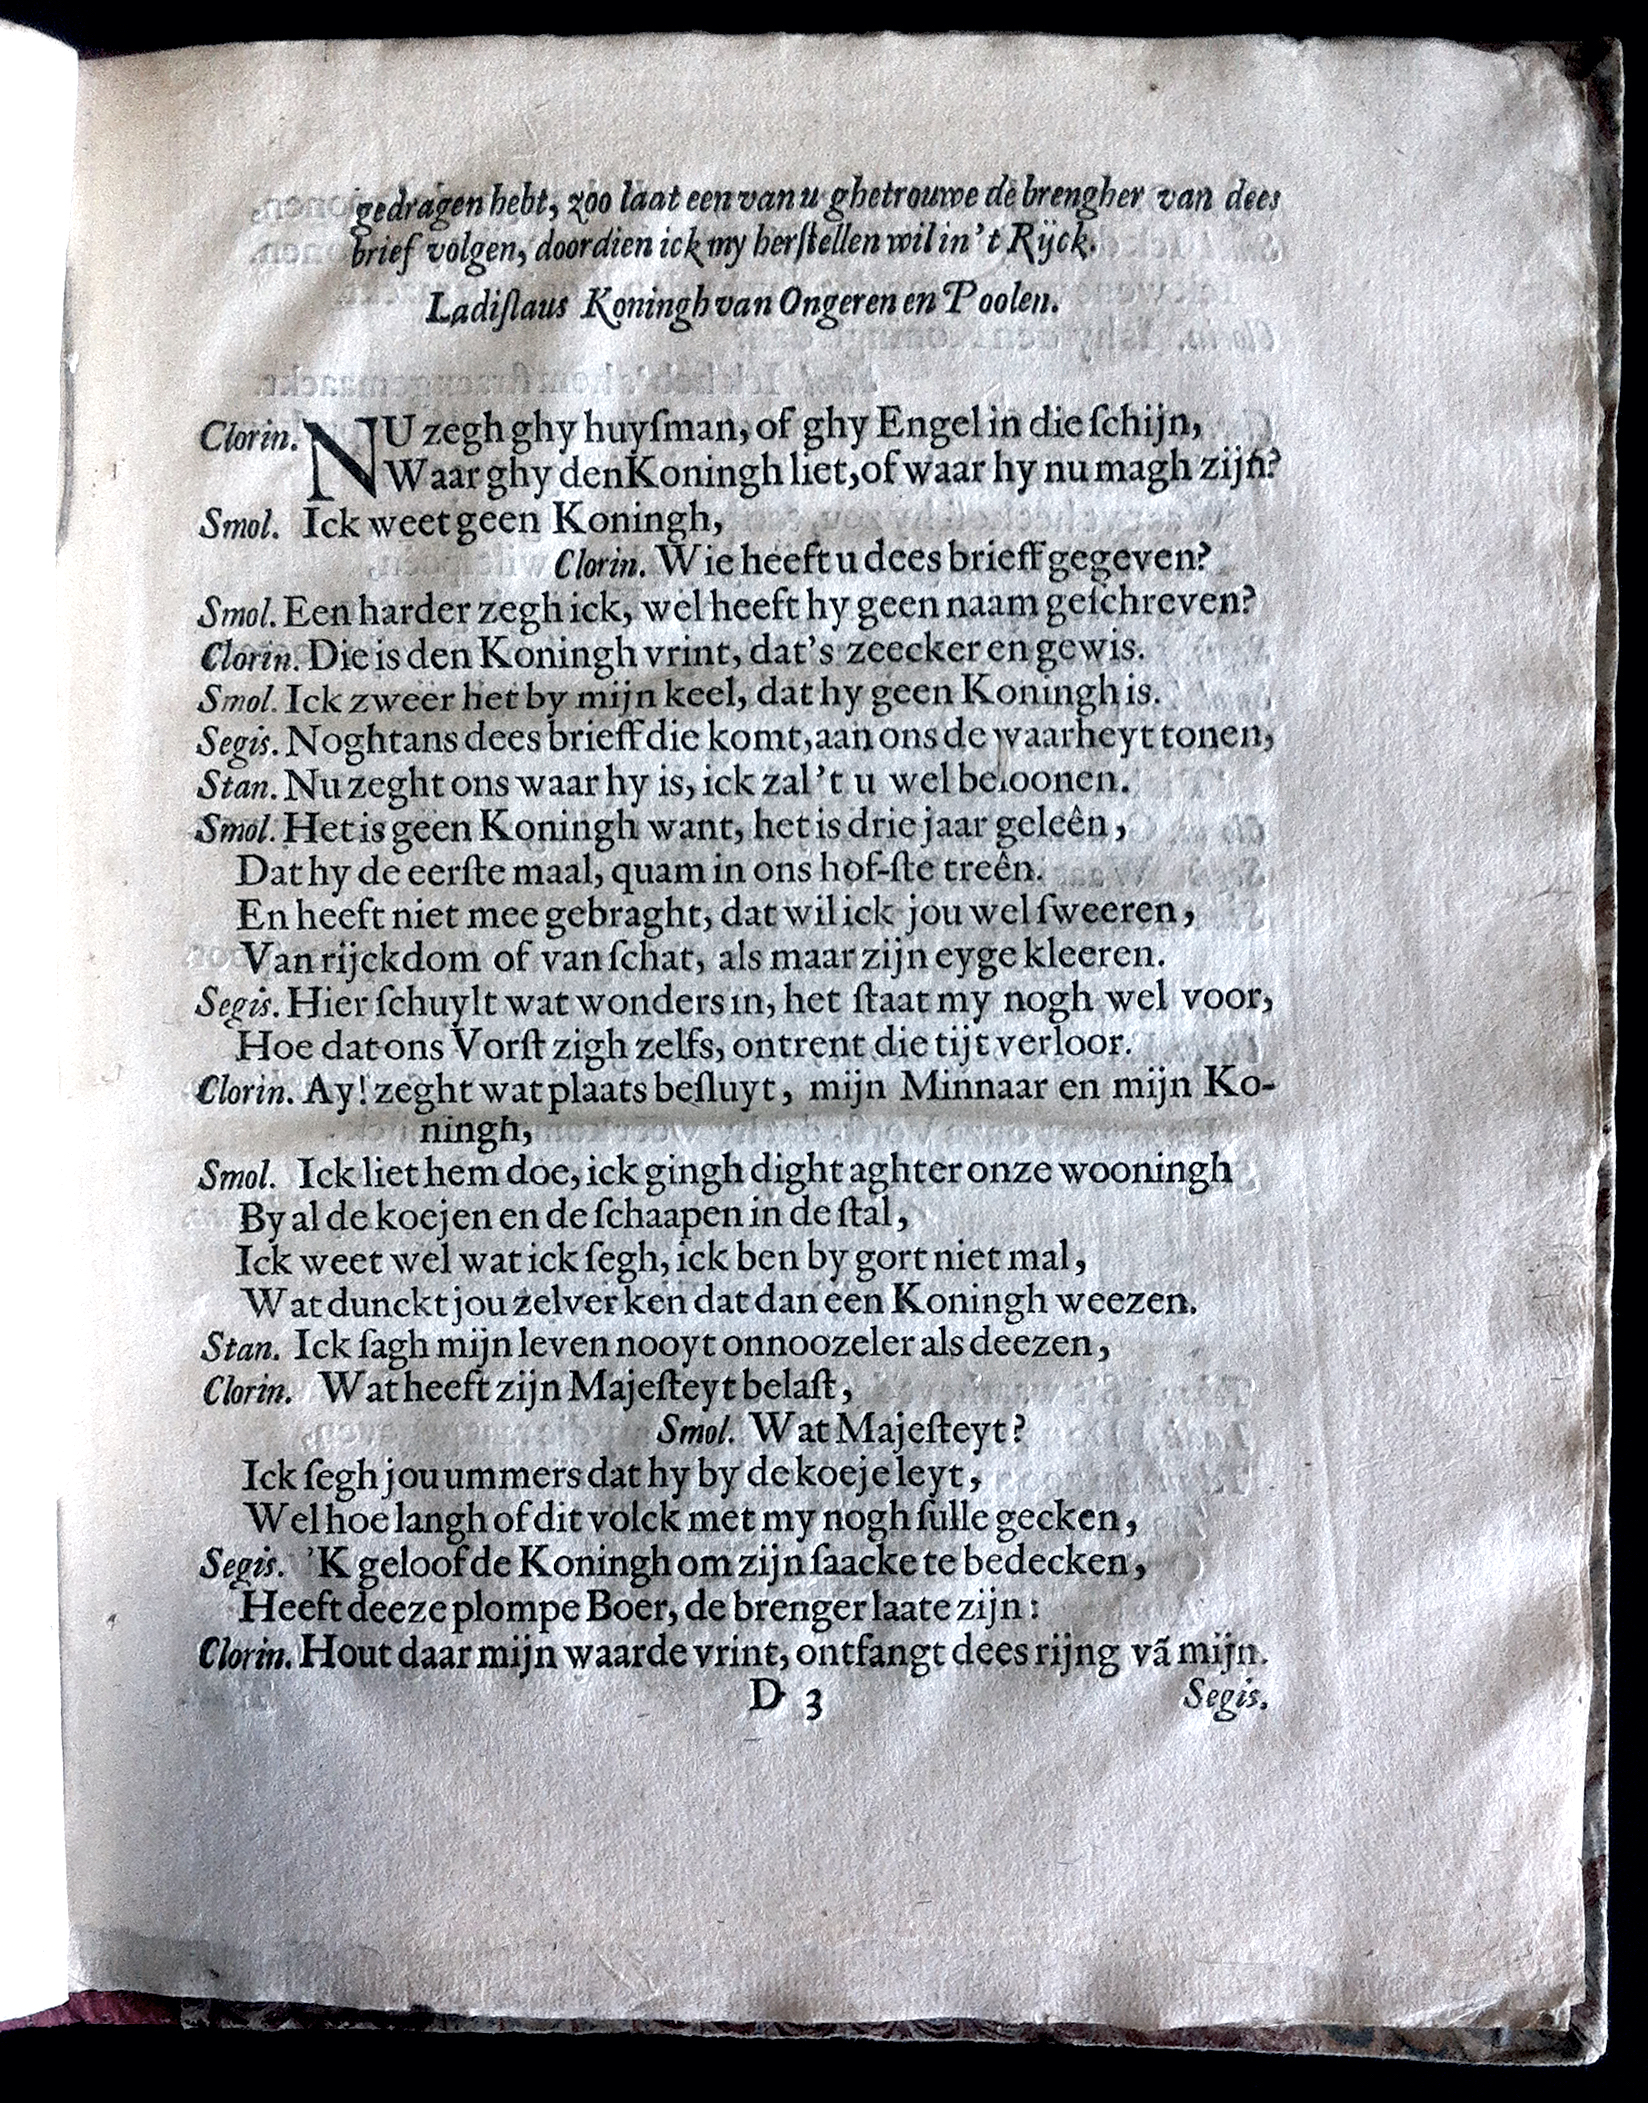 gedragen hebt, zoo laat een van u ghetrouwe de brengher van dees
brief volgen, doordien ick my herſtellen wil in 't Rijck.
Ladiſlaus Koningh van Ongeren en Poolen.
Clorin. NU zegh ghy huyſman, of ghy Engel in die ſchijn,
Waar ghy den Koningh liet, of waar hy nu magh zijn?
Smol. Ick weet geen Koningh,
Clorin. Wie heeft u dees brieff gegeven?
Smol. Een harder zegh ick, wel heeft hy geen naam geſchreven?
Clorin. Die is den Koningh vrint, dat's zeecker en gewis.
Smol. Ick zweer het by mijn keel, dat hy geen Koningh is.
Segis. Noghtans dees brieff die komt, aan ons de waarheyt tonen,
Stan. Nu zeght ons waar hy is, ick zal 't u wel beloonen.
Smol. Het is geen Koningh want, het is drie jaar geleên,
Dat hy de eerſte maal, quam in ons hof-ſte treên.
En heeft niet mee gebraght, dat wil ick jou wel ſweeren,
Van rijckdom of van ſchat, als maar zijn eyge kleeren.
Segis. Hier ſchuylt wat wonders in, het ſtaat my nogh wel voor,
Hoe dat ons Vorſt zigh zelfs, ontrent die tijt verloor.
Clorin. Ay! zeght wat plaats beſluyt, mijn Minnaar en mijn Ko-
ningh,
Smol. Ick liet hem doe, ick gingh dight aghter onze wooningh
By al de koejen en de ſchaapen in de ſtal,
Ick weet wel wat ick ſegh, ick ben by gort niet mal,
Wat dunckt jou zelver ken dat dan een Koningh weezen.
Stan. Ick ſagh mijn leven nooyt onnoozeler als deezen,
Clorin. Wat heeft zijn Majeſteyt belaſt,
Smol. Wat Majeſteyt?
Ick ſegh jou ummers dat hy by de koeje leyt,
Wel hoe langh of dit volck met my nogh ſulle gecken,
Segis. 'K geloof de Koningh om zijn ſaacke te bedecken,
Heeft deeze plompe Boer, de brenger laate zijn:
Clorin. Hout daar mijn waarde vrint, ontfangt dees rijng vã mijn.
D 3
Segis.